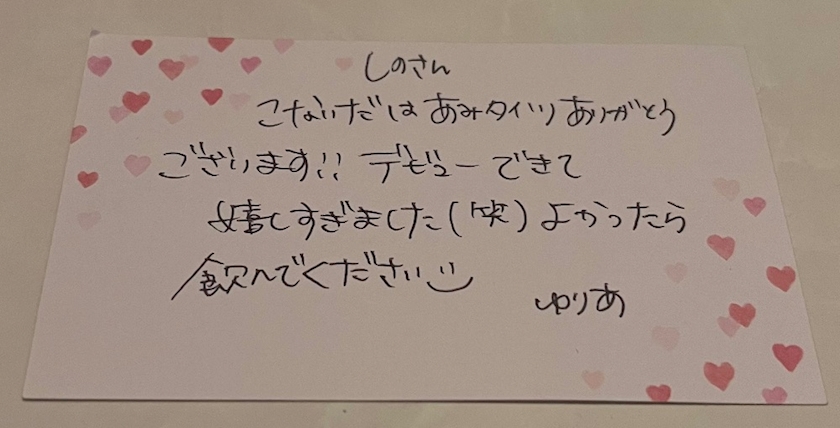 しのさん
こないだはあみタイツありがとう
ございます!! デビューできて
嬉しすぎました(笑)よかったら
飲んでください
ゆりあ